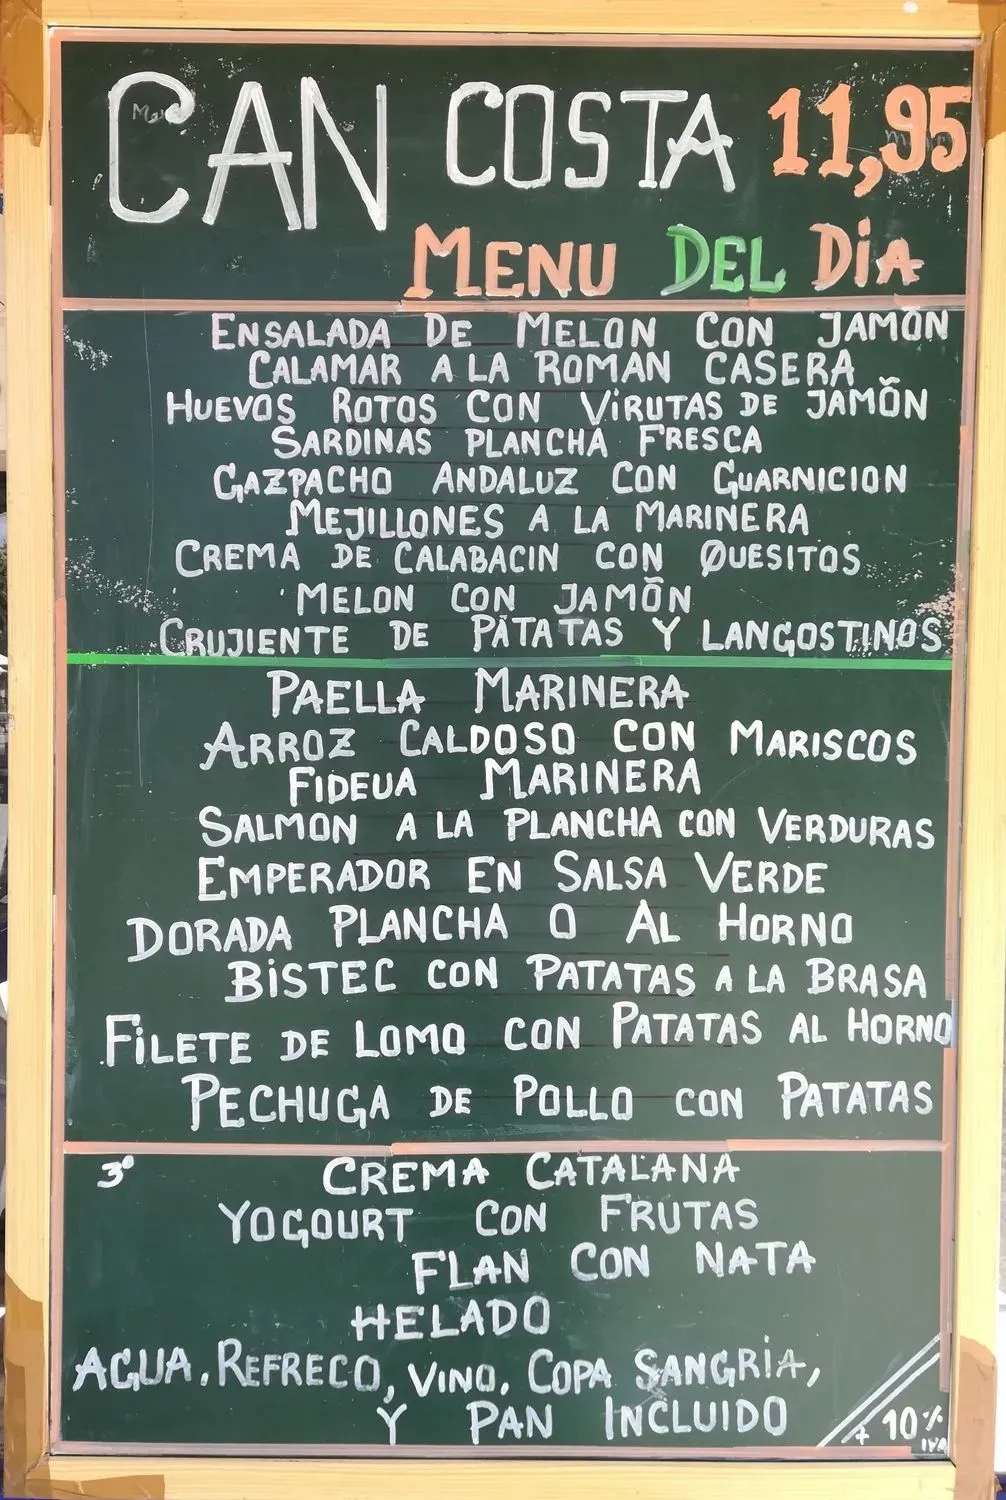 CAN COSTA 11,95
MENU DEL DiA
ENSALADA DE MELON CON JAMÕN
CALAMAR A LA ROMAN CASERA
HUEVOS ROTOS CON ViRUTAS DE JAMÕN
SARDINAS PLANCHA FRESCA
GAZPACHO ANDALUZ CON GUARNICION
MEJILLONES A LA MARINERA
CREMA DE CALABACIN CON QUESITOS
MELON CON JAMÕN
CRUJIENTE DE PATATAS Y LANGOSTINOS
PAELLA MARINERA
ARROZ CALDOSO CON MARISCOS
FIDEUA MARINERA
SALMON A LA PLANCHA CON VERDURAS
EMPERADOR EN SALSA VERDE
DORADA PLANCHA O AL HORNO
BISTEC CON PATATAS A LA BRASA
FiLETE DE LOMO CON PATATAS AL HORNO
PECHUGA DE POLLO CON PATATAS
3º CREMA CATALANA
YOGOURT CON FRUTAS
FLAN CON NATA
HELADO
AGUA, REFRECO, VINO, COPA SANGRiA,
Y PAN INCLUIDO
+ 10% IVA